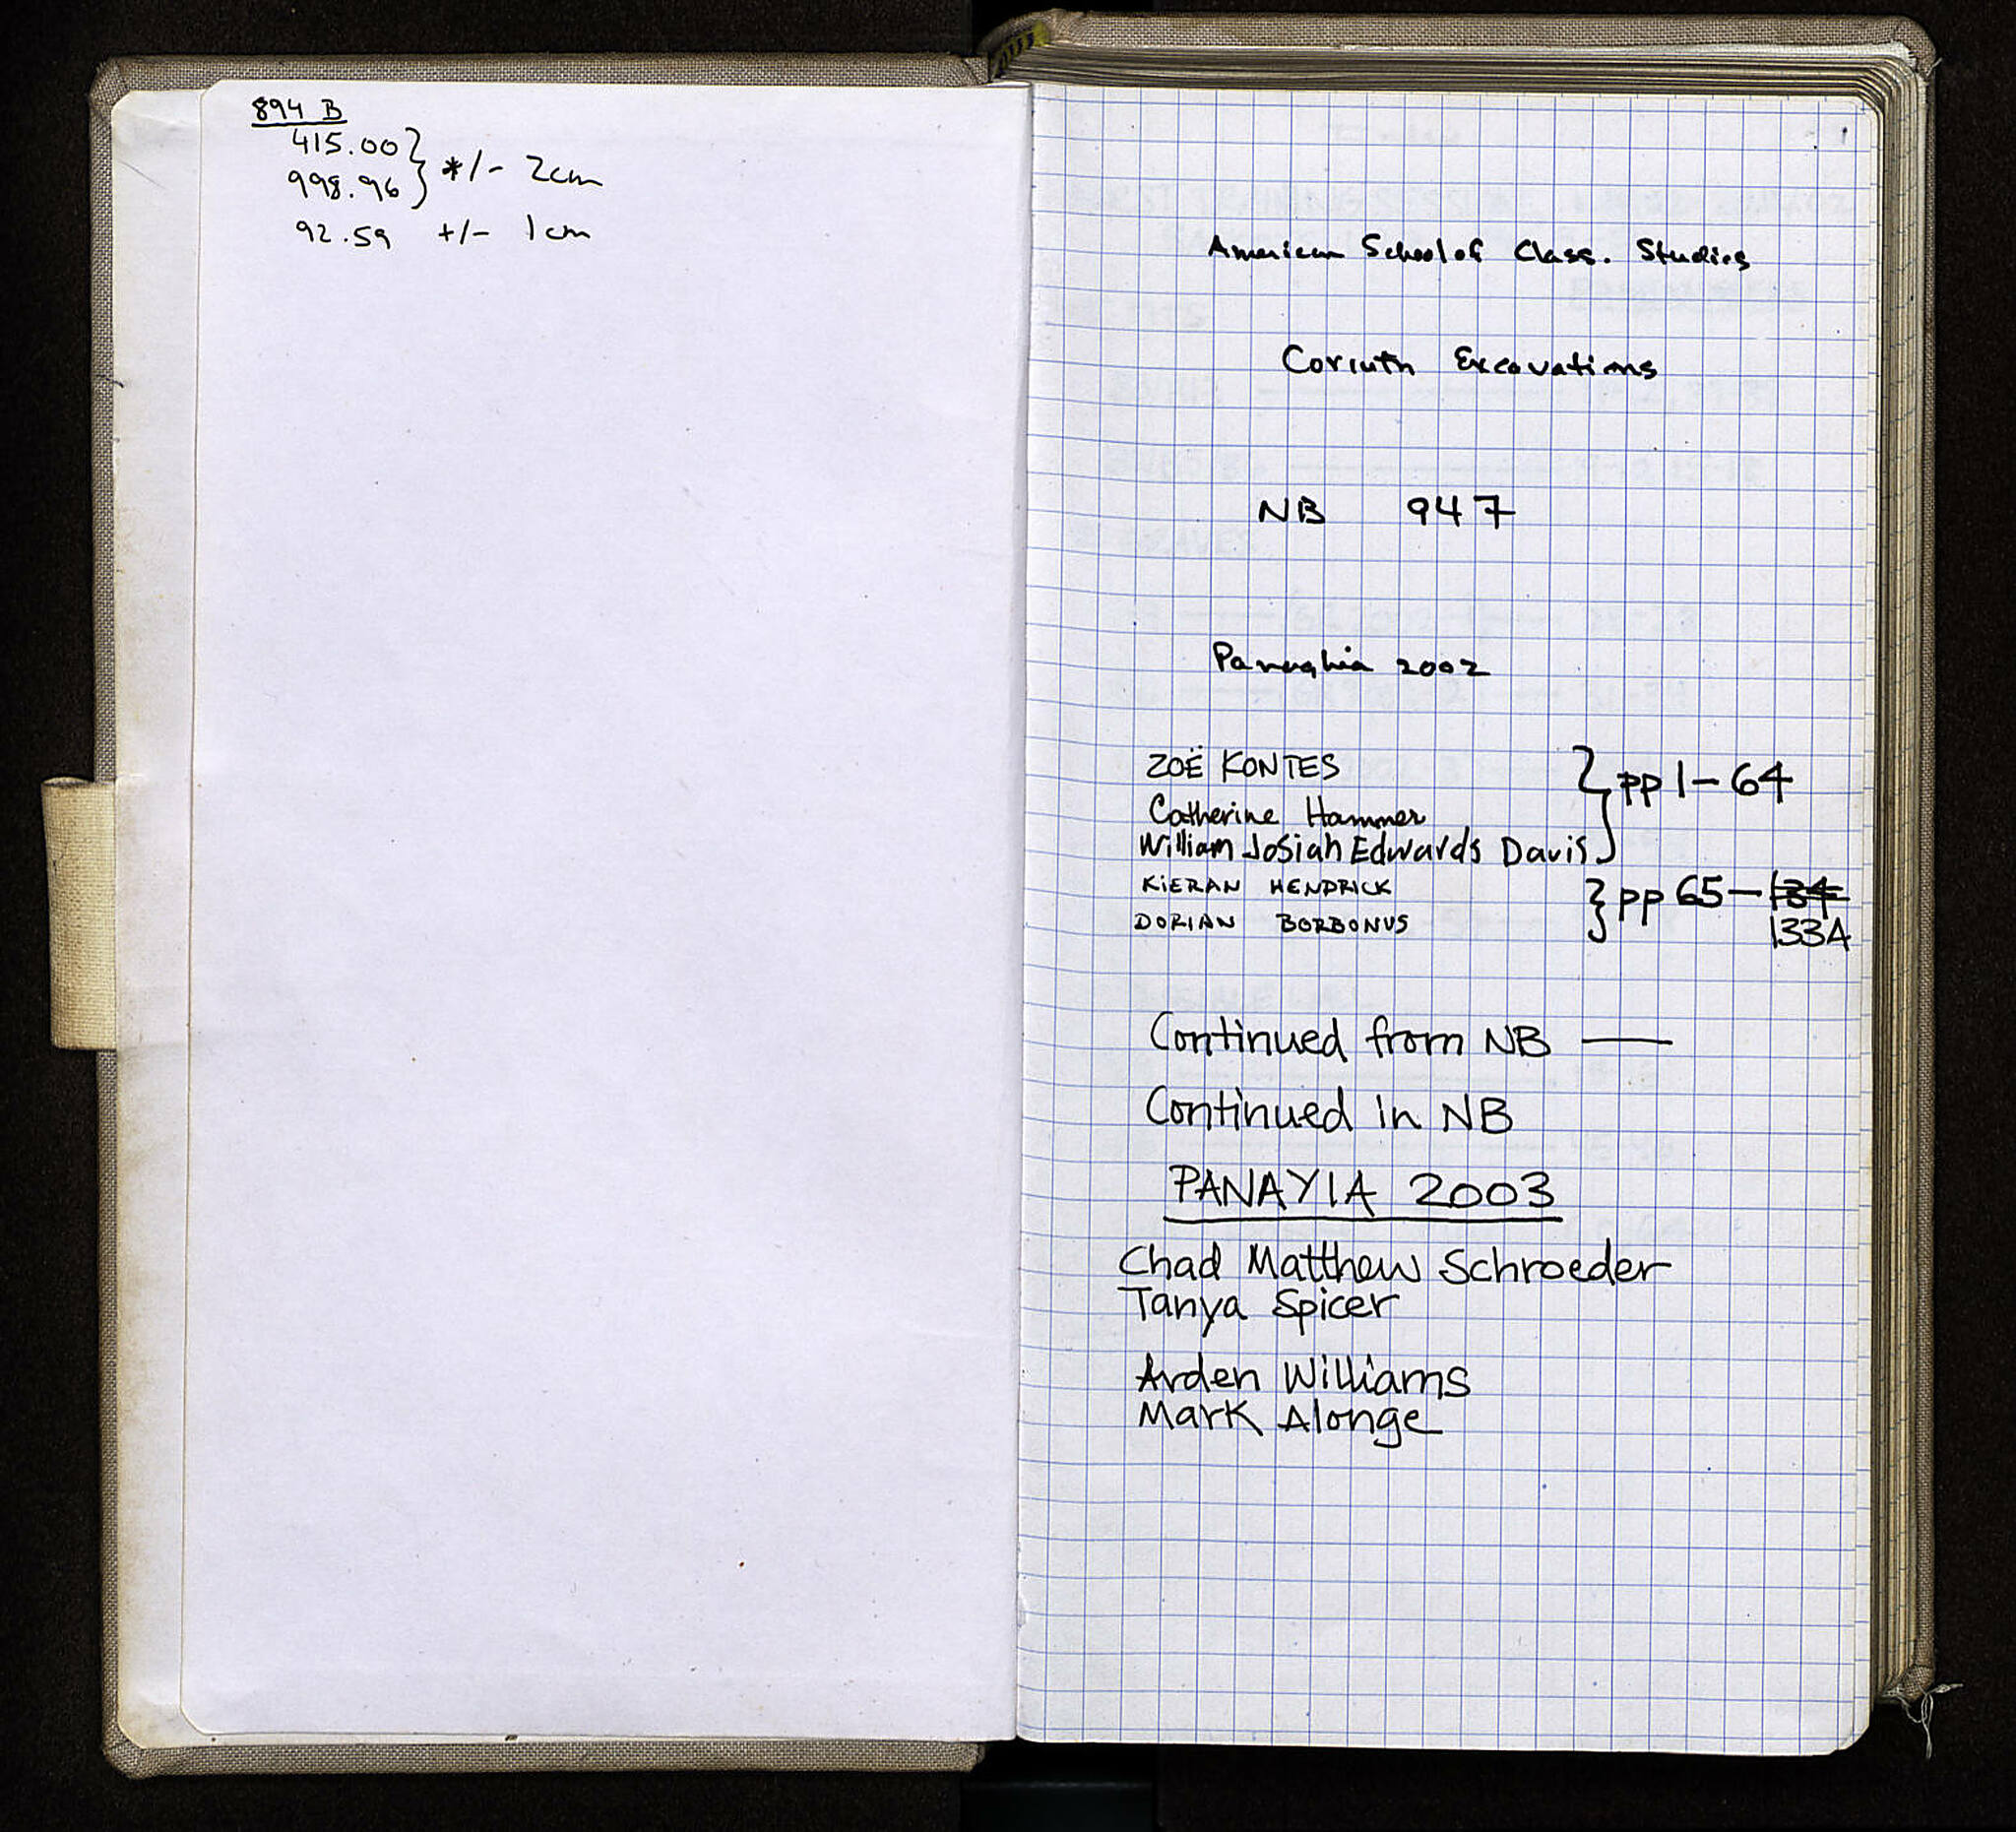 894 B
415.00
998.96 } */- 2cm
92.59 +/- 1cm
American School of Class. Studies
Corinth Excavations
NB 947
Panaghia 2002
ZOË KONTES
Catherine Hammer
William Josiah Edwards Davis } pp 1-64
KIERAN HENDRICK
DORIAN BORBONUS } pp 65-134
133A
Continued from NB —
Continued in NB
PANAYIA 2003
Chad Matthew Schroeder
Tanya Spicer
Arden Williams
Mark Alonge